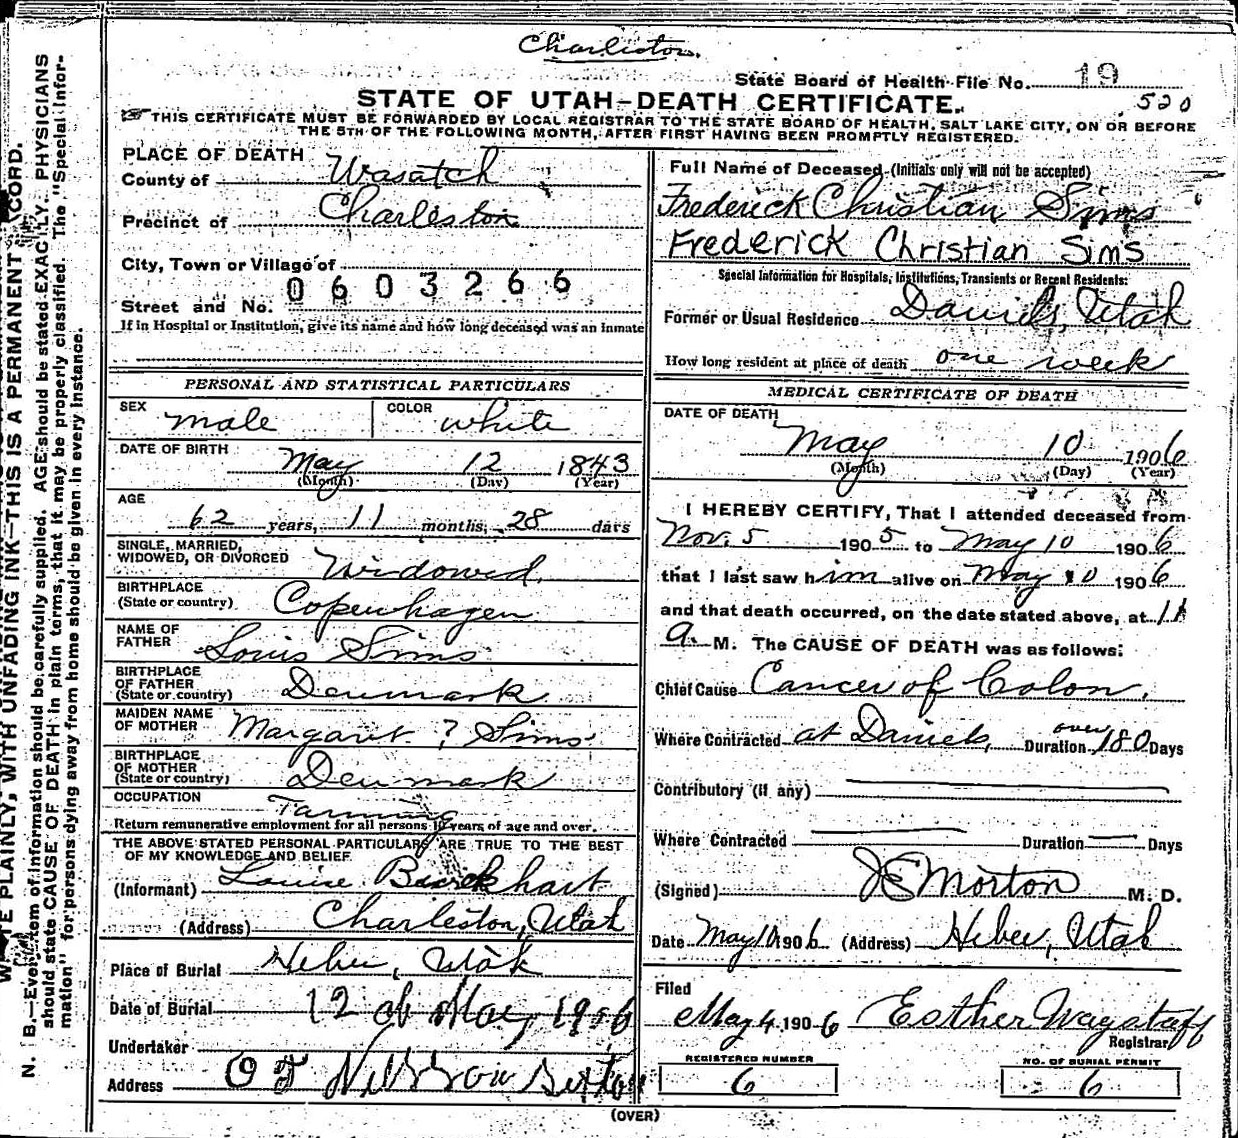 Charleston.
State Board of Health File No. 19
520
STATE OF UTAH—DEATH CERTIFICATE.
THIS CERTIFICATE MUST BE FORWARDED BY LOCAL REGISTRAR TO THE STATE BOARD OF HEALTH, SALT LAKE CITY, ON OR BEFORE
THE 5TH OF THE FOLLOWING MONTH, AFTER FIRST HAVING BEEN PROMPTLY REGISTERED.
PLACE OF DEATH
County of Wasatch
Precinct of Charleston
City, Town or Village of
0603266
Street and No.
If in Hospital or Institution, give its name and how long deceased was an inmate
PERSONAL AND STATISTICAL PARTICULARS
SEX male COLOR white
DATE OF BIRTH May 12 1843
(Month) (Day) (Year)
AGE 62 years, 11 months, 28 days
SINGLE, MARRIED,
WIDOWED, OR DIVORCED Widowed
BIRTHPLACE
(State or country) Copenhagen
NAME OF
FATHER Louis Sims
BIRTHPLACE
OF FATHER
(State or country) Denmark
MAIDEN NAME
OF MOTHER Margaret ? Sims
BIRTHPLACE
OF MOTHER
(State or country) Denmark
OCCUPATION Farming
Return remunerative employment for all persons 10 years of age and over.
THE ABOVE STATED PERSONAL PARTICULARS ARE TRUE TO THE BEST
OF MY KNOWLEDGE AND BELIEF.
(Informant) Louise Burkhart
(Address) Charleston, Utah
Place of Burial Heber, Utah
Date of Burial 12 of May 1906
Undertaker
Address O J Nilsson Sexton
Full Name of Deceased (Initials only will not be accepted)
Frederick Christian Sims
Frederick Christian Sims
Special Information for Hospitals, Institutions, Transients or Recent Residents:
Former or Usual Residence Daniels, Utah
How long resident at place of death one week
MEDICAL CERTIFICATE OF DEATH
DATE OF DEATH
May 10 1906
(Month) (Day) (Year)
I HEREBY CERTIFY, That I attended deceased from
Nov. 5 1905 to May 10 1906
that I last saw him alive on May 10 1906
and that death occurred, on the date stated above, at 11
a. M. The CAUSE OF DEATH was as follows:
Chief Cause Cancer of Colon.
Where Contracted at Daniels, Duration over 180 Days
Contributory (if any)
Where Contracted Duration Days
(Signed) JE Morton M. D.
Date May 10 1906 (Address) Heber, Utah
Filed
May 4 1906 Esther Wagstaff
Registrar
REGISTERED NUMBER
6
NO. OF BURIAL PERMIT
6
(OVER)
PLAINLY, WITH UNFADING INK—THIS IS A PERMANENT
N. B.—Every item of information should be carefully supplied. AGE should be stated EXACTLY. PHYSICIANS
should state CAUSE OF DEATH in plain terms, that it may be properly classified. The "Special Infor-
mation" for persons dying away from home should be given in every instance.